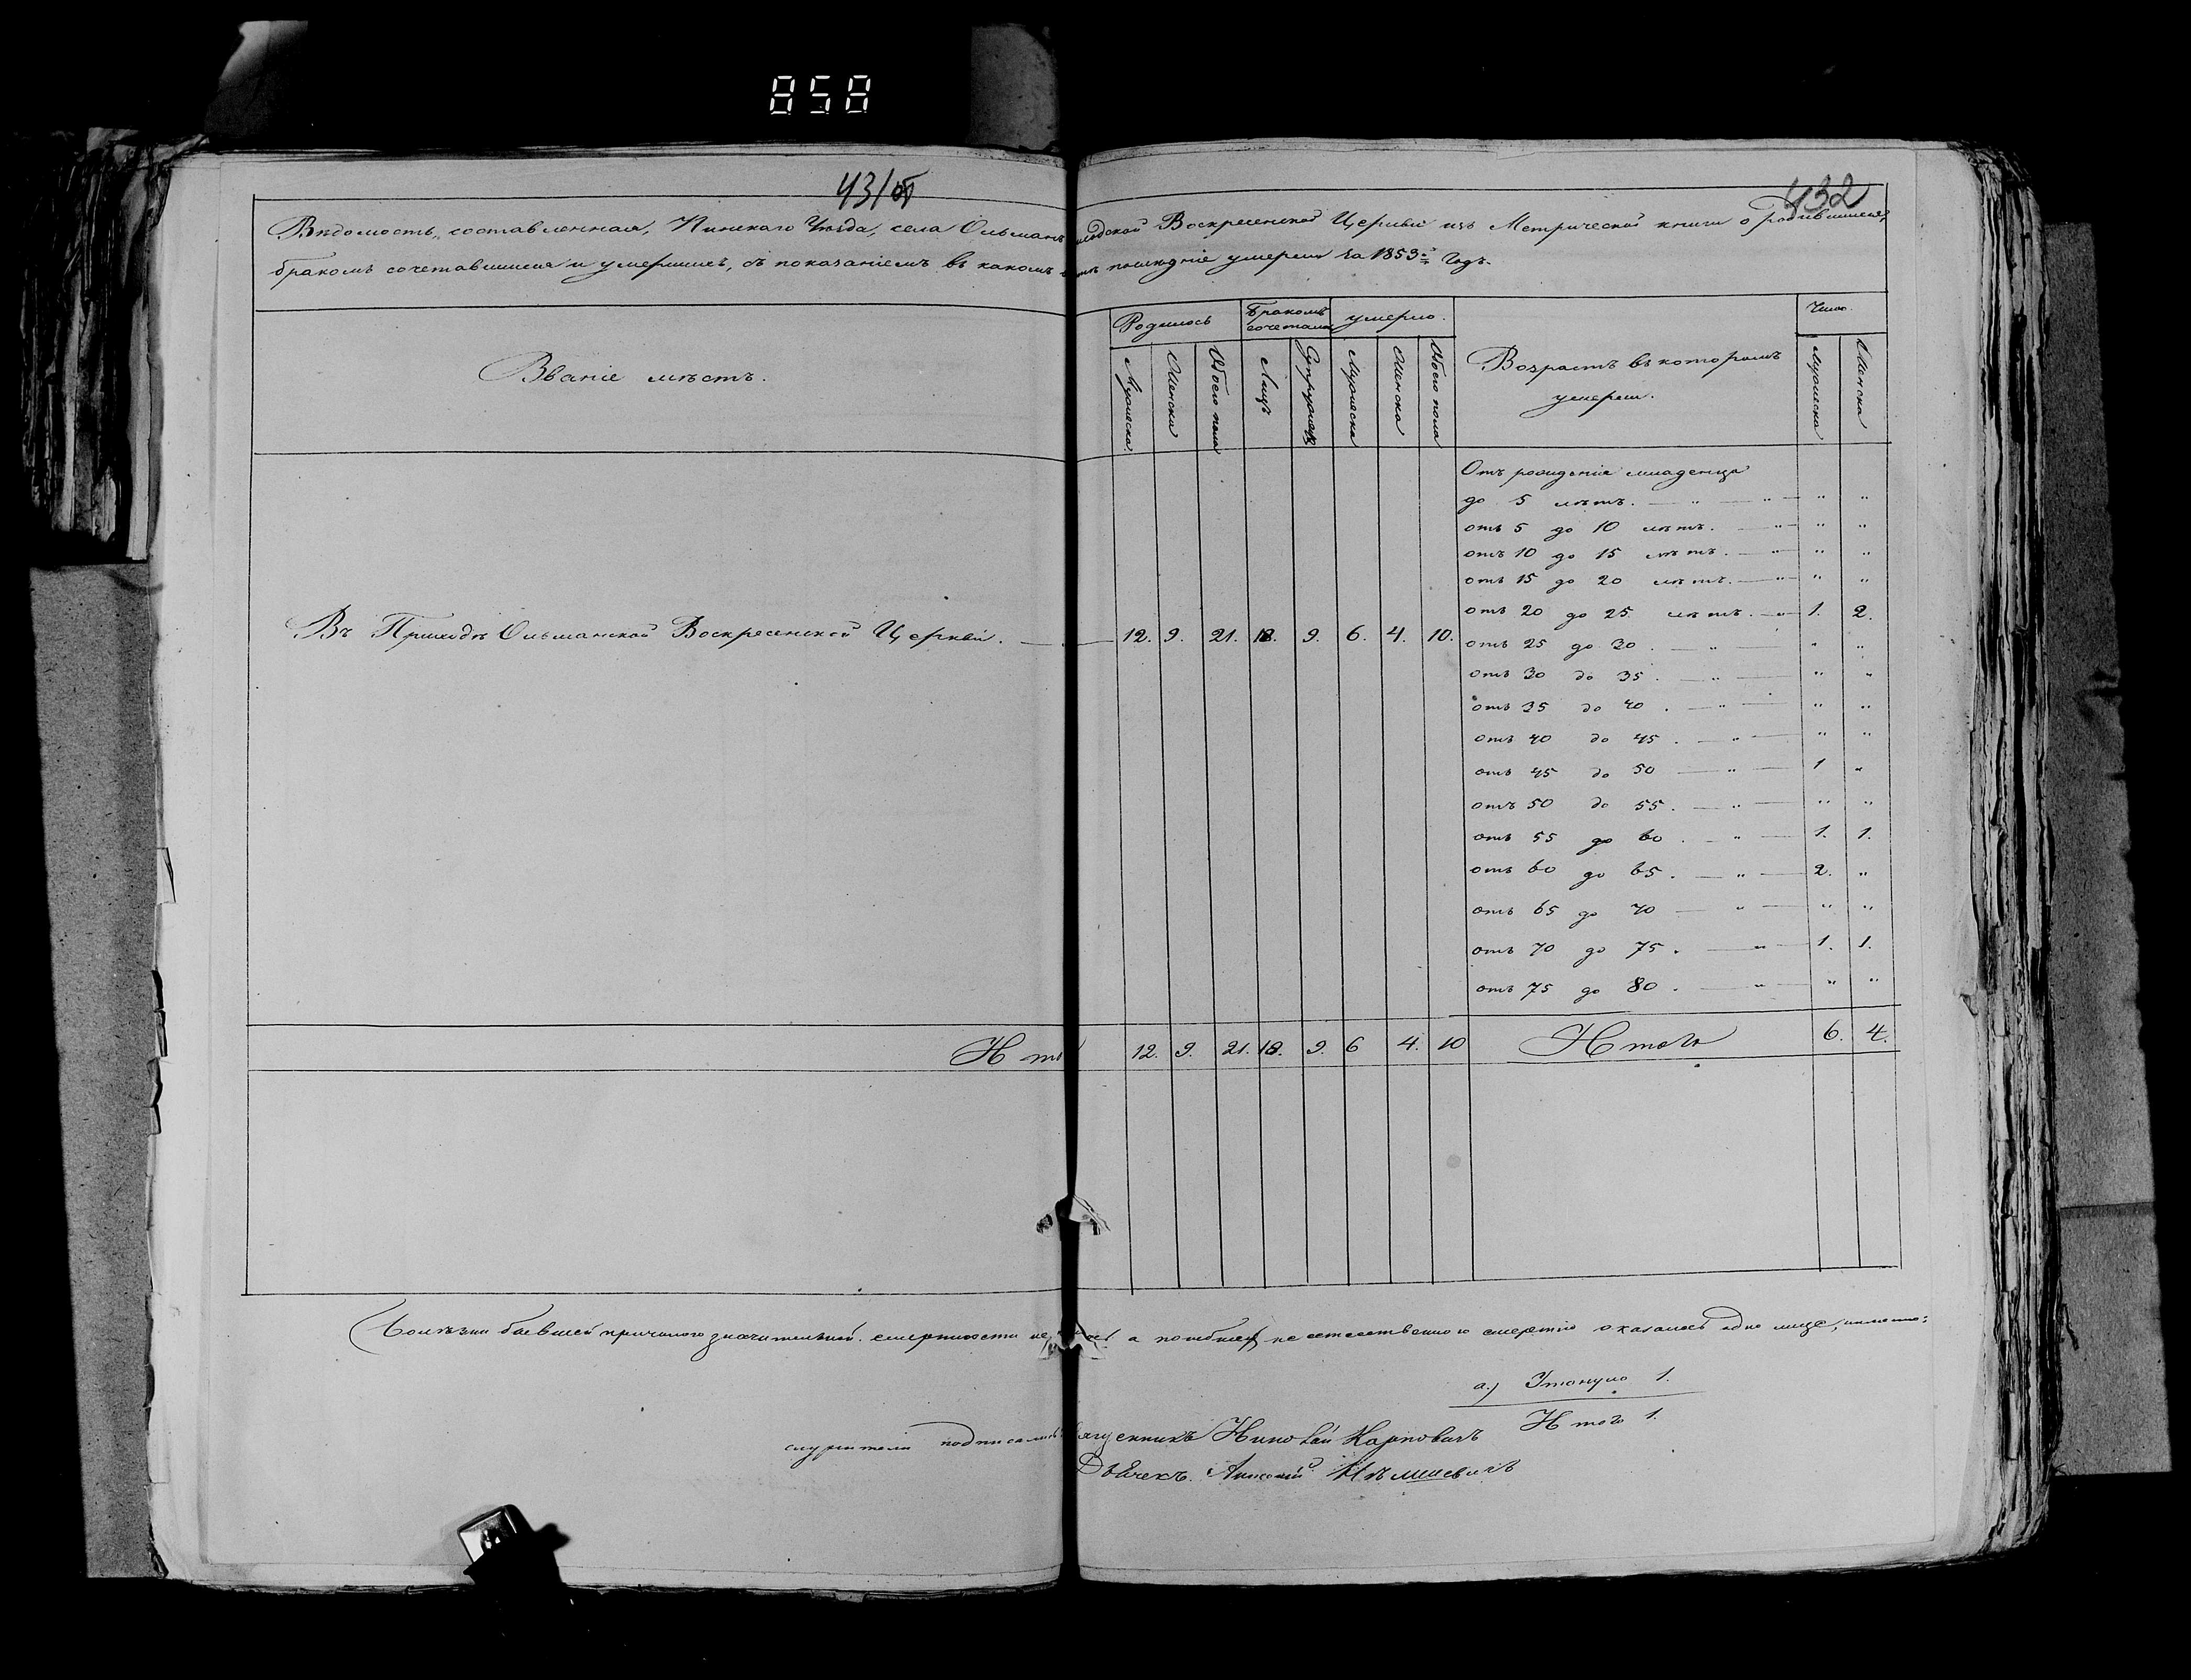 858
431об
432
Вѣдомость, составленная, Пинскаго Уѣзда, села Ольманъ Воскресенской Церкви изъ Метрической книги о родившихся,
бракомъ сочетавшихся и умершихъ, съ показаніемъ въ какомъ послѣдніе умерли за 1853й Годъ.
Званіе мѣстъ.
Родилось
Бракомъ сочетались
умерло.
Возрастъ въ которомъ умерли.
Число.
Мужеска.
Женска
Обоего пола
Лицъ
Супружествъ
Мужеска
Женска
Обоего пола
Мужеска
Женска
Отъ рожденія младенца
до 5 лѣтъ. — " — " — " "
отъ 5 до 10 лѣтъ. — " — " "
отъ 10 до 15 лѣтъ. — " — " "
отъ 15 до 20 лѣтъ. — " — " "
отъ 20 до 25 лѣтъ. — " 1. 2.
Въ Приходѣ Ольманской Воскресенской Церкви. — 12. 9. 21. 18. 9. 6. 4. 10.
отъ 25 до 30 . — " — " "
отъ 30 до 35 . — " — " "
отъ 35 до 40 . — " — " "
отъ 40 до 45 . — " — " "
отъ 45 до 50 — " — 1 "
отъ 50 до 55 . — " — " "
отъ 55 до 60 . — " — 1. 1.
отъ 60 до 65 . — " — 2. "
отъ 65 до 70 — " — " "
отъ 70 до 75 . — " — 1. 1.
отъ 75 до 80 . — " — " "
Ито 12. 9. 21. 18. 9. 6 4. 10 Итого 6. 4.
Болѣзни бывшей причиною значительной смертности не а погибшихъ не естественною смертію оказалось одно лице, именно:
а.) Утонуло 1.
Итого 1.
служители подписались Священникъ Карповичъ
Дьячекъ Антоній Нѣмцевичъ